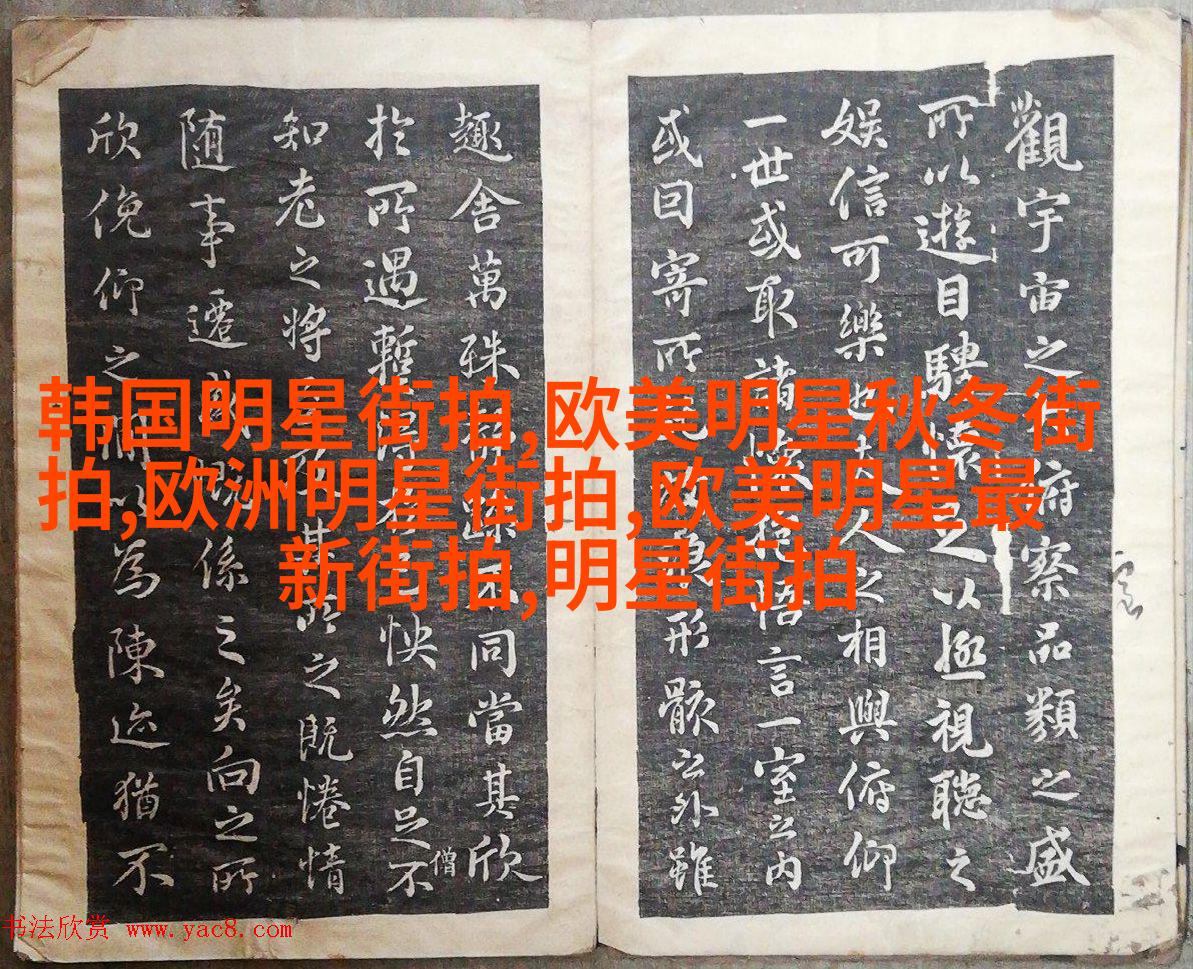 觀宇宙之俯察品類之盛
所以遊目騁懷足以極視聽之
娱信可樂也夫人之相與俯仰
一世或取諸懷抱悟言一室之内
或因寄所放浪形骸之外雖
趣舍萬殊躁不同當其欣
於所遇暫得怏然自足不
僧
知老之將及其所之既惓情
随事遷感慨係之矣向之所
欣俛仰之間以為陳迹猶不
韩国明星街拍,欧美明星秋冬街
拍,欧洲明星街拍,欧美明星最
新街拍,明星街拍
书法欣赏 www.yac8.com